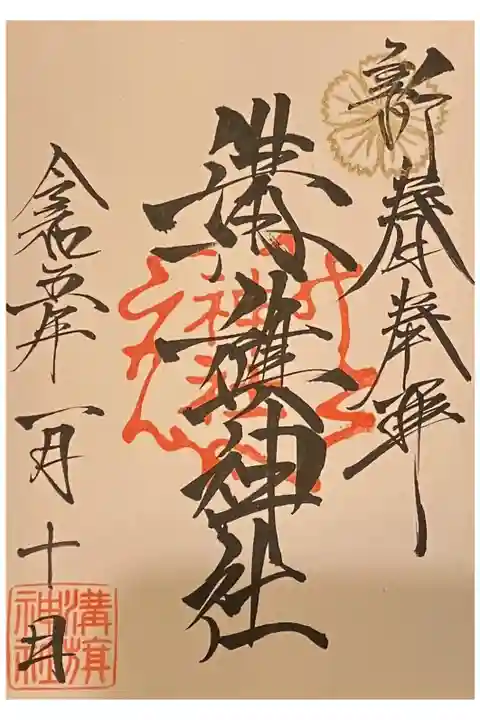 新春奉拝
溝旗神社
神社
令和五年一月十日
溝旗
神社